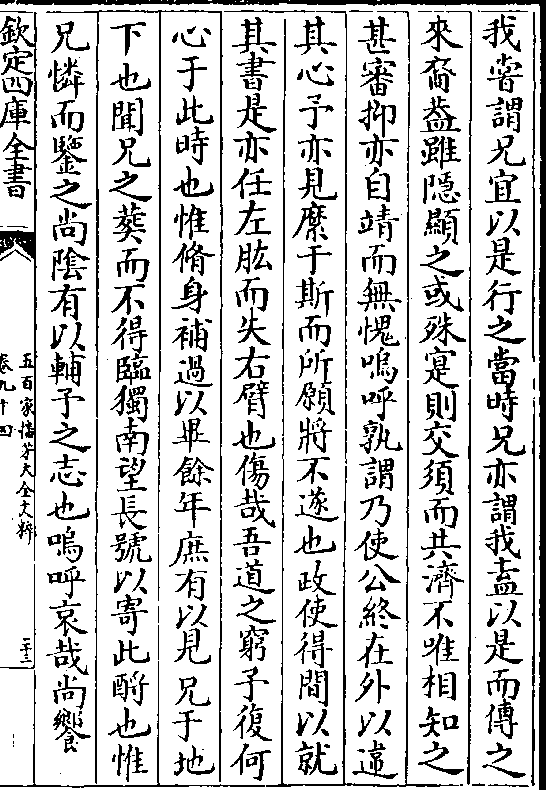 我嘗謂兄宜以是行之當時兄亦謂我盍以是而傳之
來裔葢雖隠顯之或殊寔則交須而共濟不唯相知之
甚審抑亦自靖而無愧嗚呼孰謂乃使公終在外以違
其心予亦見縻于斯而所願將不遂也政使得間以就
其書是亦任左肱而失右臂也傷哉吾道之窮予復何
心于此時也惟脩身補過以畢餘年庶有以見兄于地
下也聞兄之葬而不得臨獨南望長號以寄此酹也惟
兄憐而鑒之尚隂有以輔予之志也嗚呼哀哉尚饗
欽定四庫全書
五百家播芳大全文粹
卷九十四
二十三